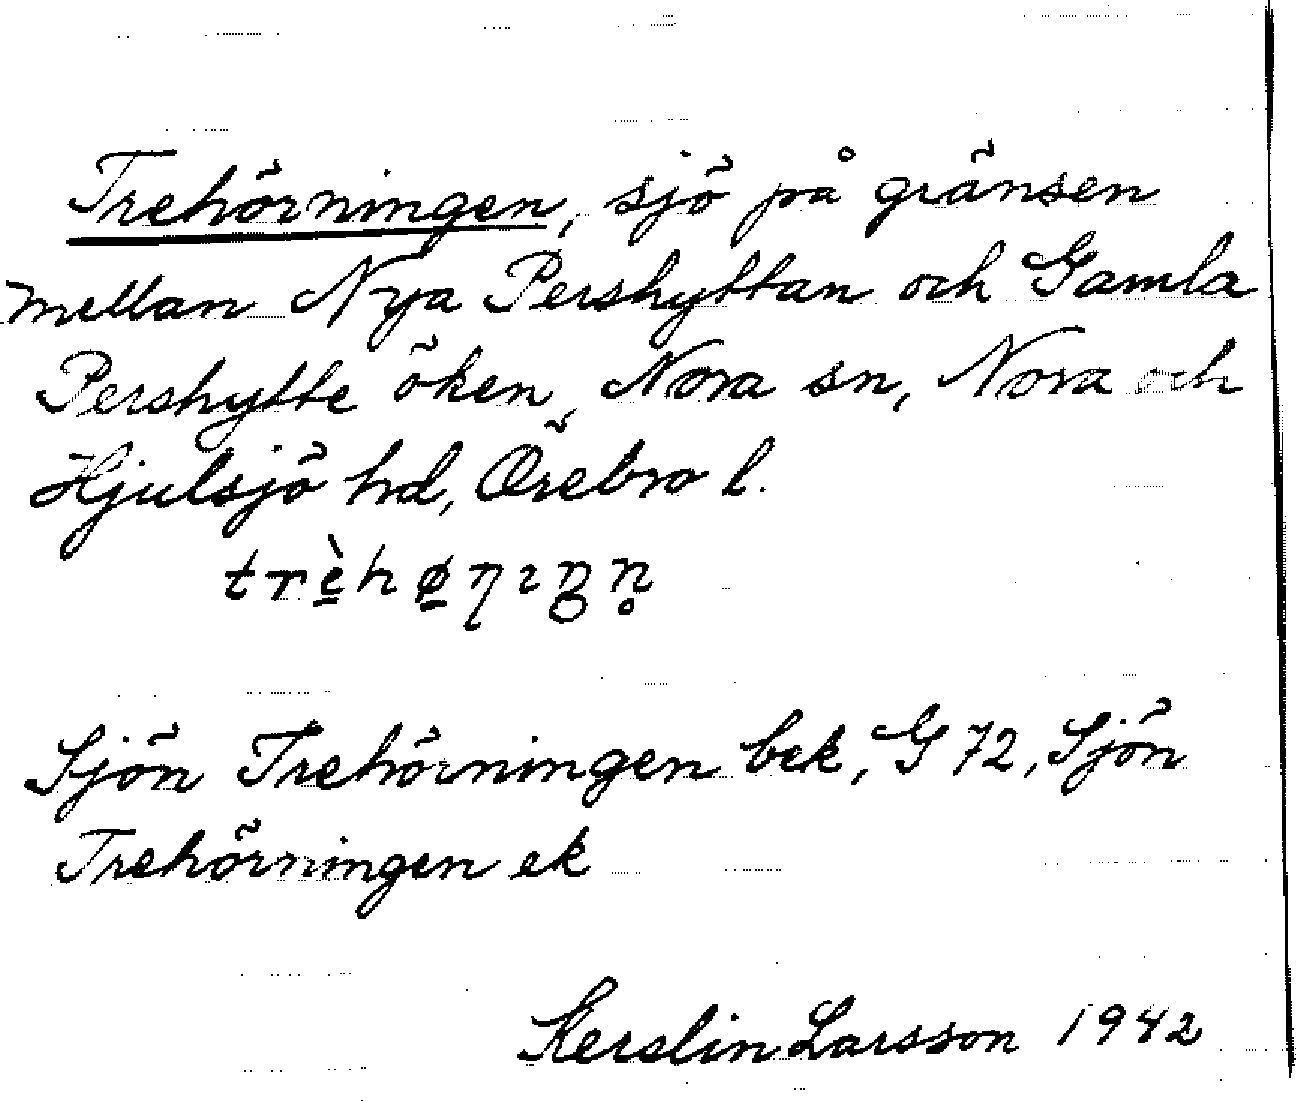 Trehörningen, sjö på gränsen
mellan Nya Pershyttan och Gamla
Pershytte öken, Nora sn, Nora och
Hjulsjö hd, Örebro l.
Sjön Trehörningen bek, G 72, Sjön
Trehörningen ek
Kerstin Larsson 1942